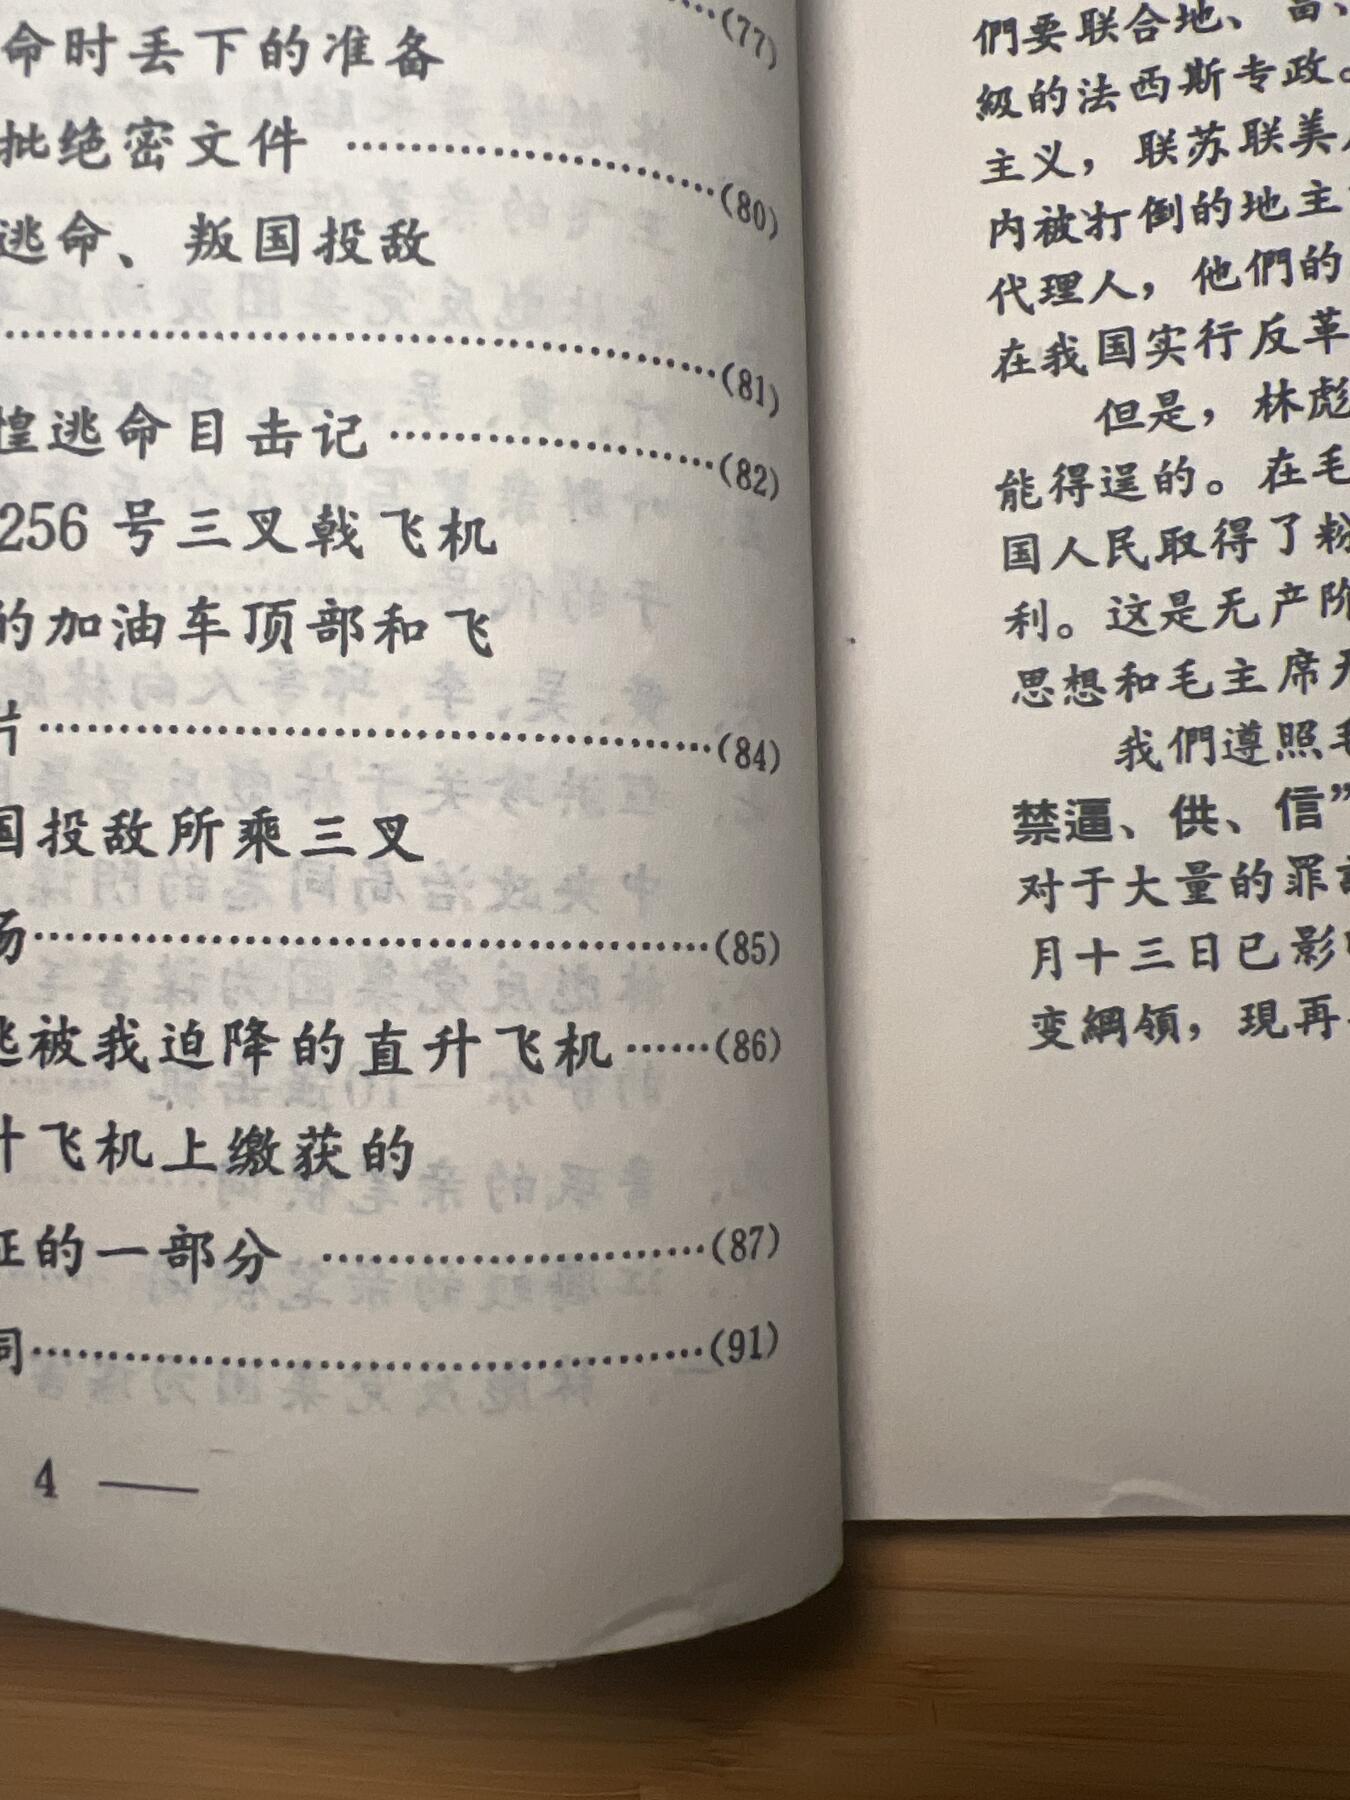 (77)
命时丢下的准备
批绝密文件 (80)
逃命、叛国投敌
(81)
惶逃命目击记 (82)
256 号三叉戟飞机
的加油车顶部和飞
片 (84)
国投敌所乘三叉
场 (85)
逃被我迫降的直升飞机 (86)
升飞机上缴获的
证的一部分 (87)
词 (91)
4 ——
們要联合地、富、
級的法西斯专政。
主义，联苏联美
内被打倒的地主
代理人，他們的
在我国实行反革
但是，林彪
能得逞的。在毛
国人民取得了粉
利。这是无产阶
思想和毛主席
我們遵照毛
禁逼、供、信”
对于大量的罪
月十三日已影
变綱領，現再